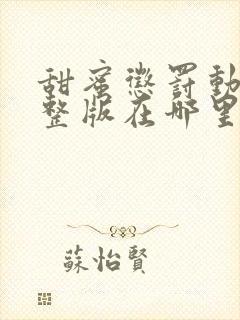 甜蜜懲罰動
整版在哪里
蘇怡賢